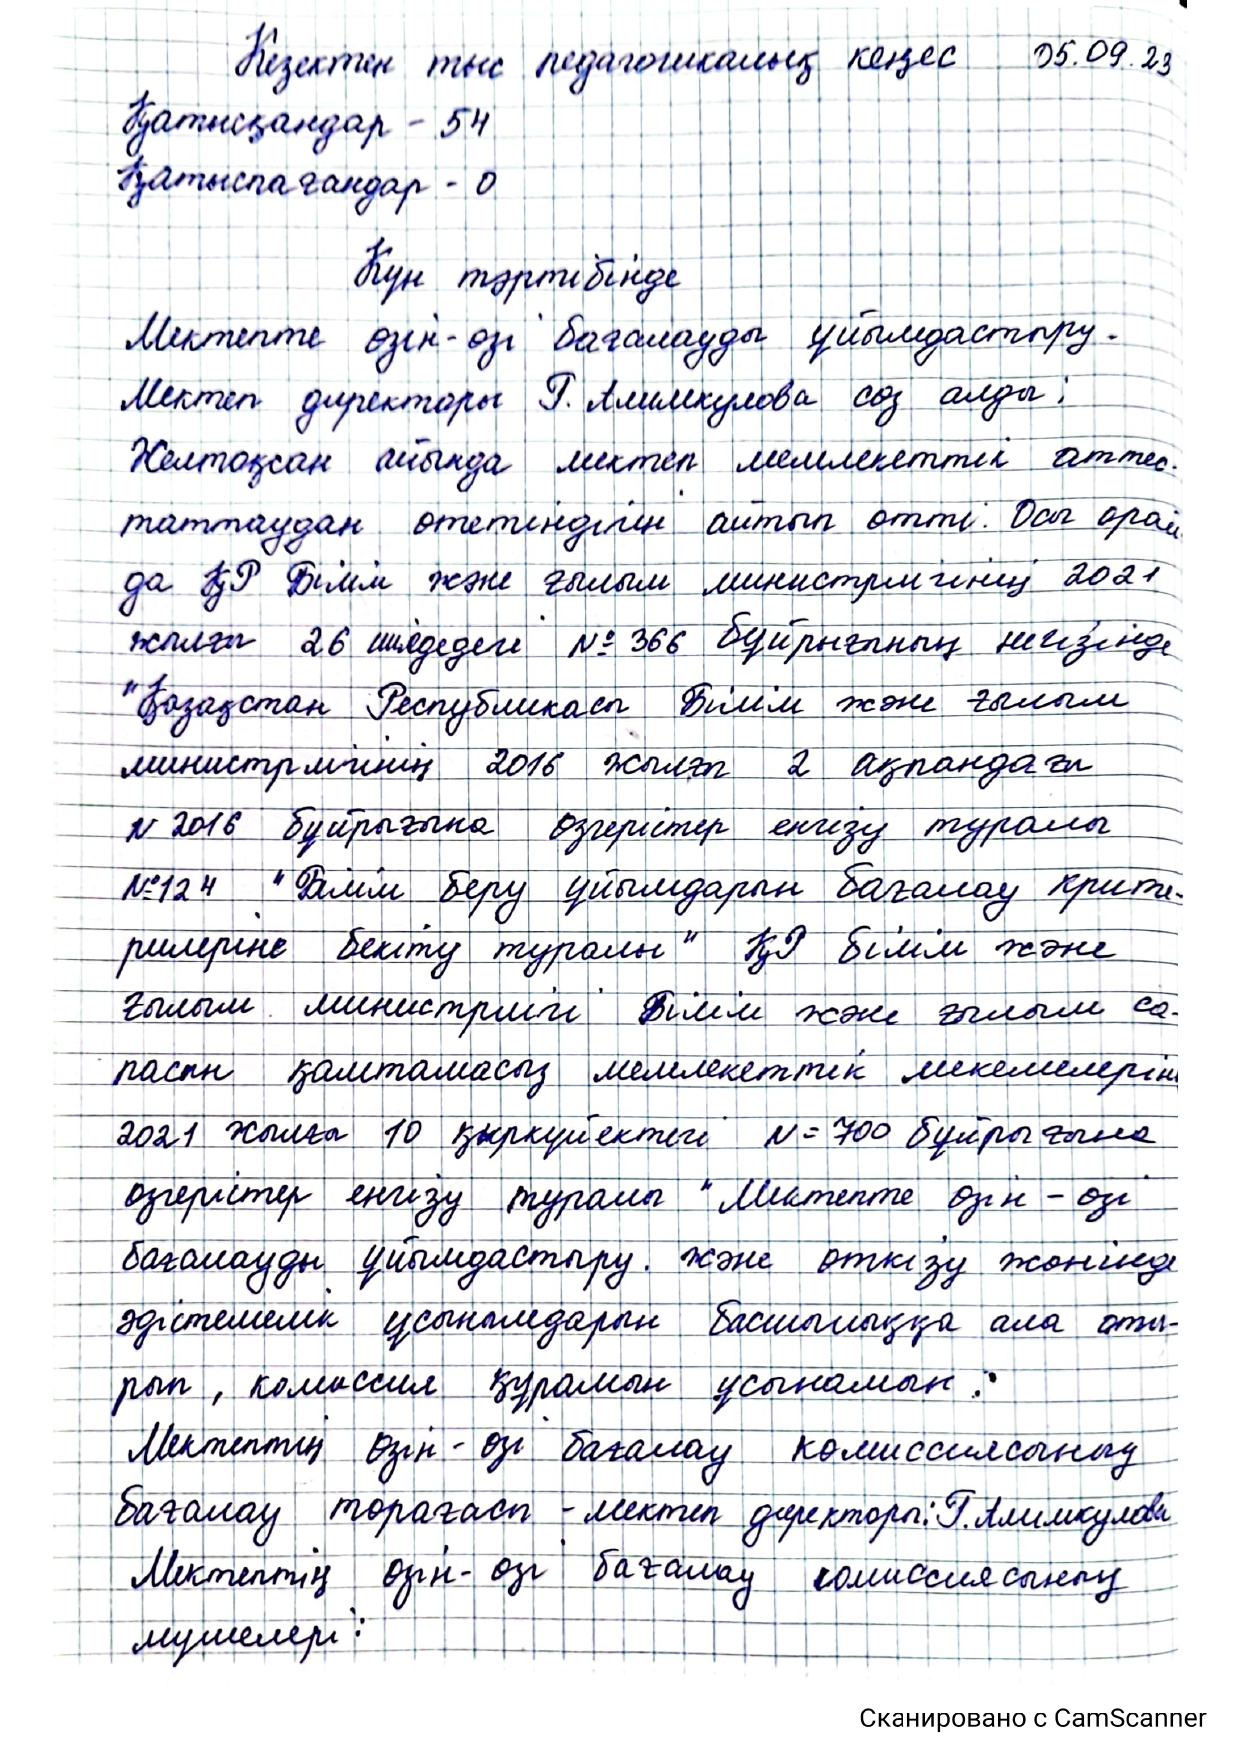 Кезектен тыс педагогикалық кеңес 05.09.23
Қатысқандар - 54
Қатыспағандар - 0
Күн тәртібінде
Мектепте өзін-өзі бағалауды ұйымдастыру.
Мектеп директоры Г. Алимкулова сөз алды:
Желтоқсан айында мектеп мемлекеттік аттес-
таттаудан өтетіндігін айтып өтті. Осы орай
да ҚР Білім және ғылым министрлігінің 2021
жылғы 26 шілдедегі № 366 бұйрығының негізінде
"Қазақстан Республикасы Білім және ғылым
министрлігінің 2016 жылғы 2 ақпандағы
N 2016 бұйрығына өзгерістер енгізу туралы
№124 "Білім беру ұйымдарын бағалау крите-
рилеріне бекіту туралы" ҚР Білім және
ғылым министрлігі Білім және ғылым са-
пасын қамтамасыз мемлекеттік мекемелерін
2021 жылғы 10 қыркүйектегі N=700 бұйрығына
өзгерістер енгізу туралы "Мектепте өзін-өзі
бағалауды ұйымдастыру. және өткізу жөнінде
әдістемелік ұсынымдарын басшылыққа ала оты-
рып, комиссия құрамын ұсынамын:
Мектептің өзін-өзі бағалау комиссиясының
бағалау төрағасы - мектеп директоры: Г. Алимкулова
Мектептің өзін-өзі бағалау комиссиясының
мүшелері:
Сканировано с CamScanner